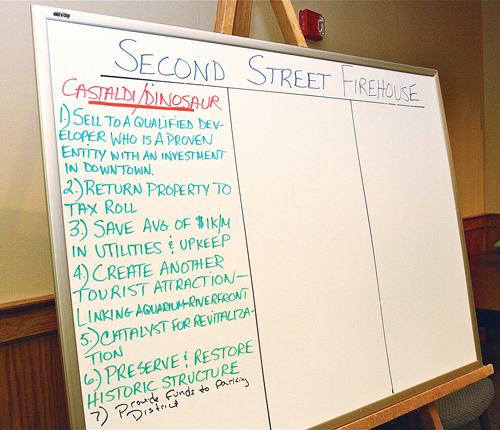 SECOND STREET FIREHOUSE
CASTALDI/DINOSAUR
1.) SELL TO A QUALIFIED DEV-
ELOPER WHO IS A PROVEN
ENTITY WITH AN INVESTMENT
IN DOWNTOWN.
2.) RETURN PROPERTY TO
TAX ROLL
3.) SAVE AVG OF $1K/M
IN UTILITIES & UPKEEP
4.) CREATE ANOTHER
TOURIST ATTRACTION—
LINKING AQUARIUM-RIVERFRONT
5.) CATALYST FOR REVITALIZA-
TION
6.) PRESERVE & RESTORE
HISTORIC STRUCTURE
7.) Provide Funds to Parking
District